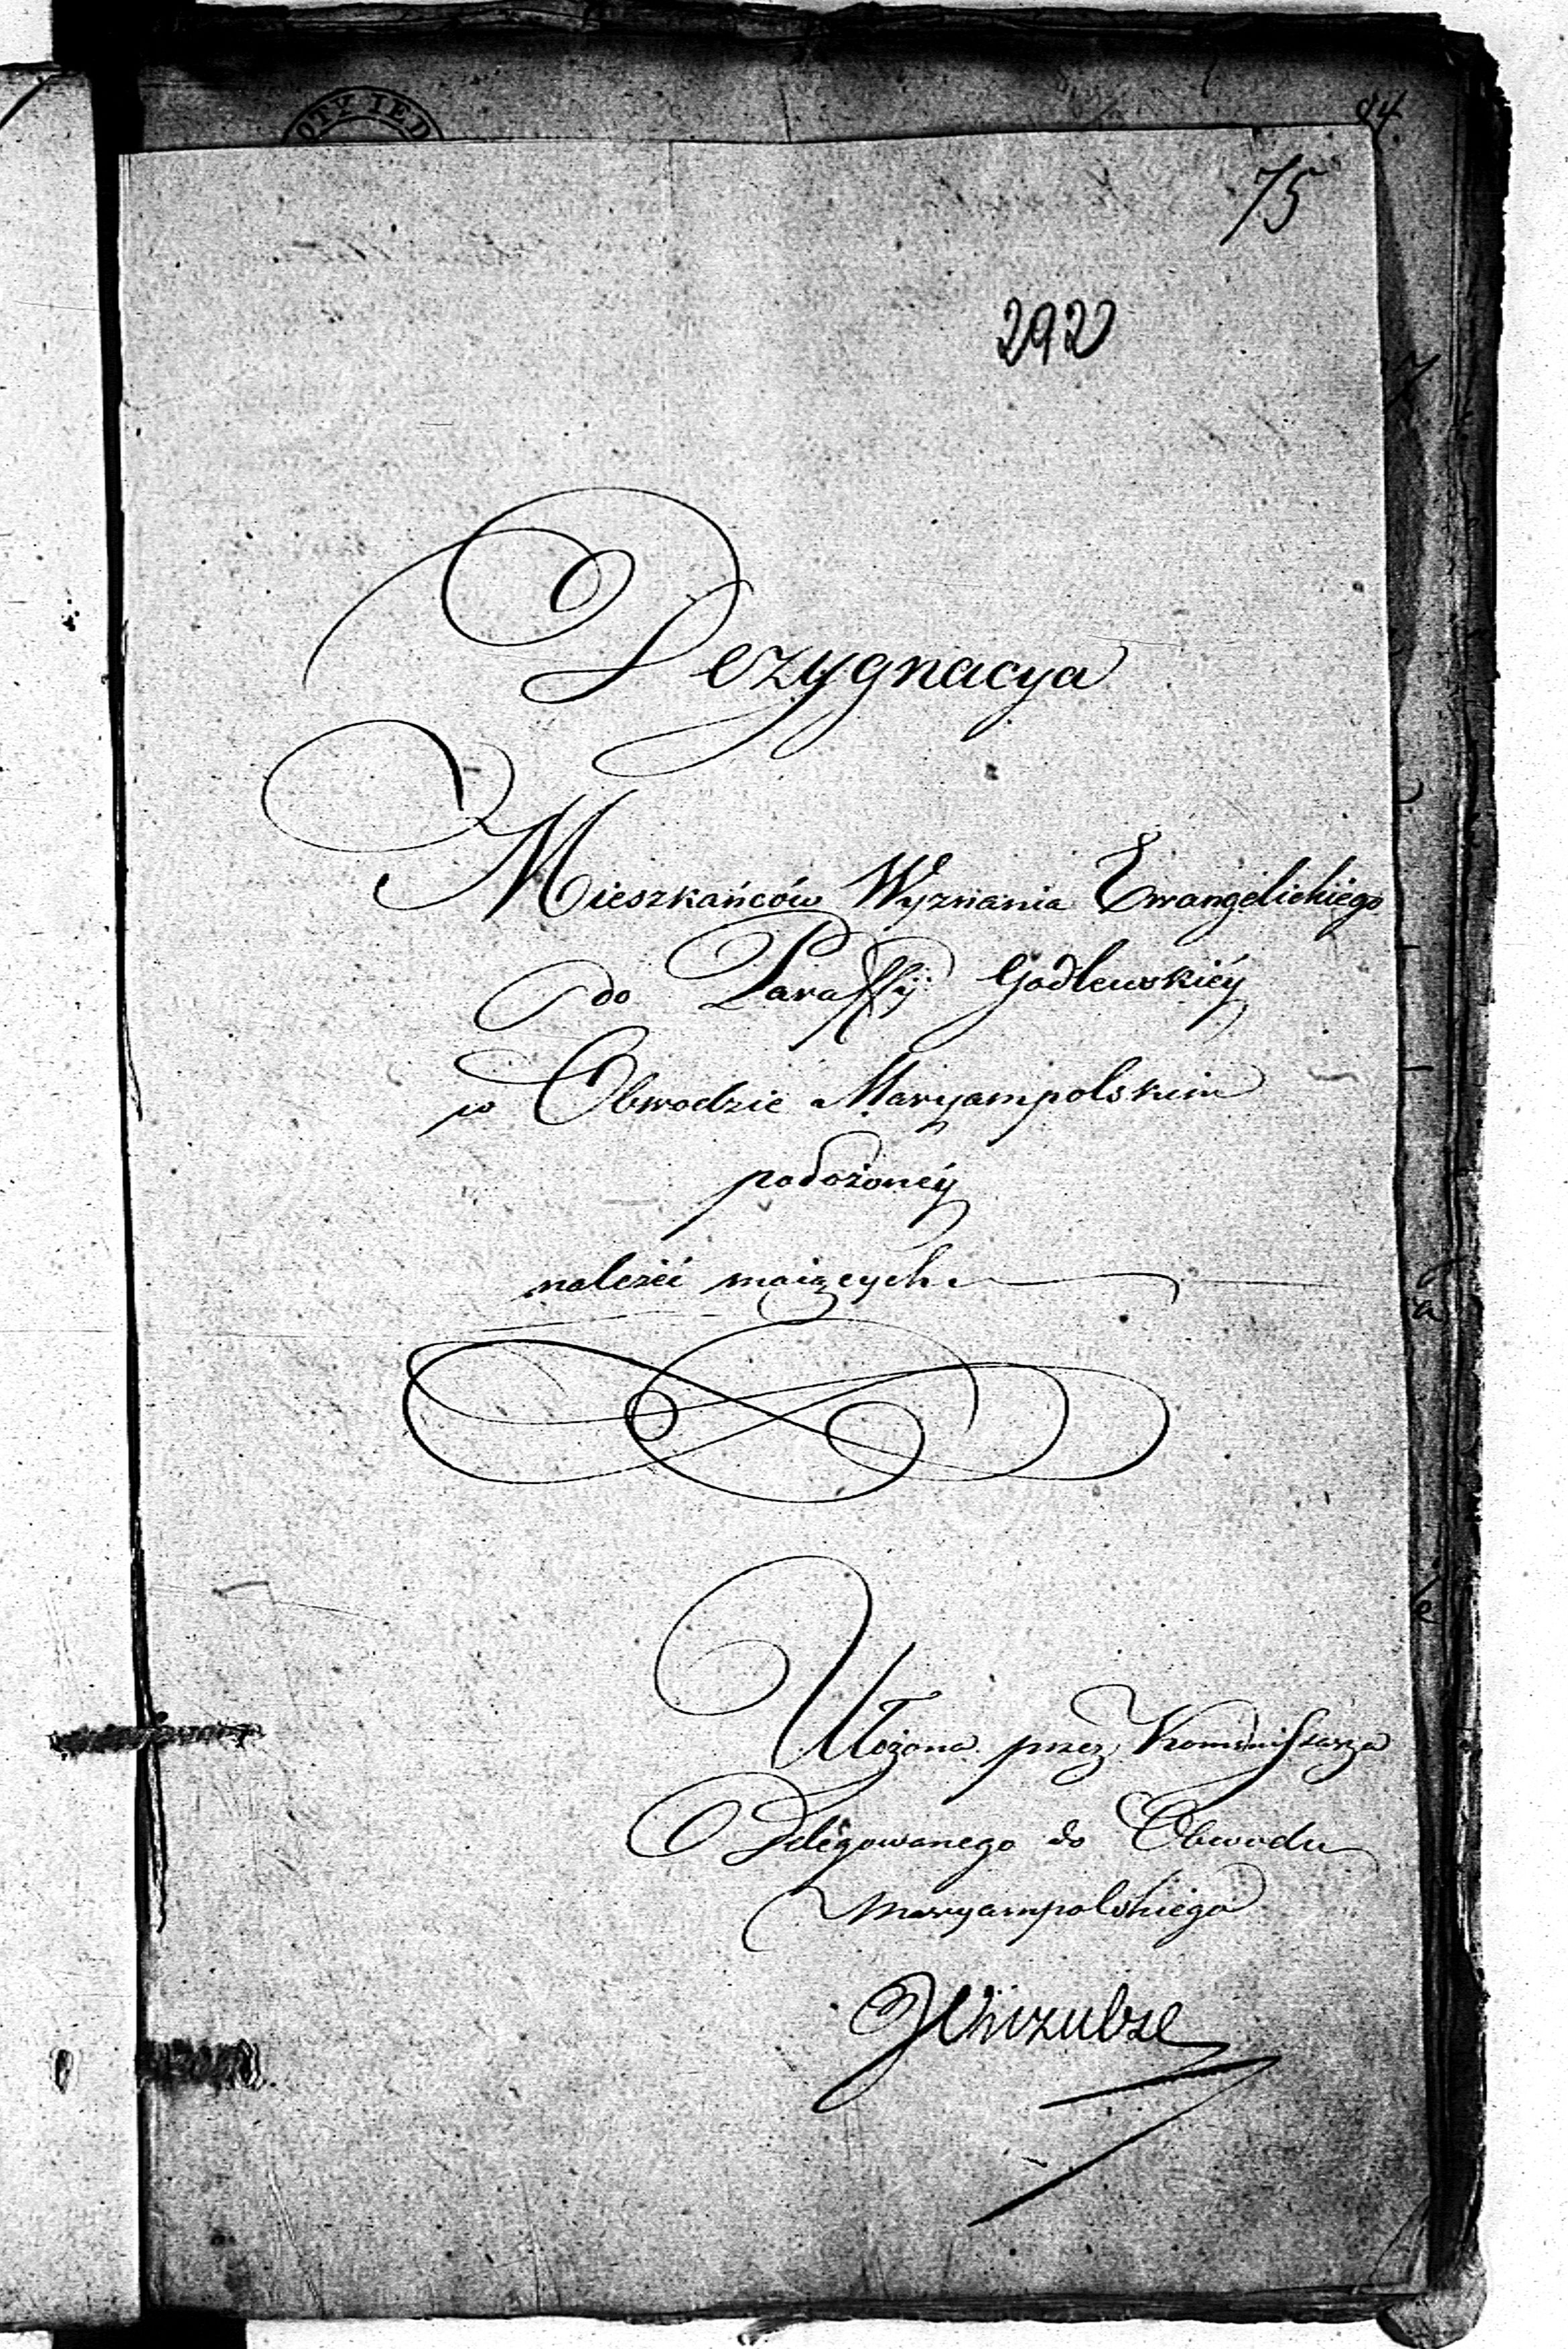 OTY IED
84.
75
292
Dezygnacya
Mieszkańców Wyznania Ewangelickiego
do Paraffÿi Godlewskiéy
w Obwodzie Maryampolskim
położonéy
należéć maiących
Ułożona przez Kommissarza
Delegowanego do Obwodu
Maryampolskiego